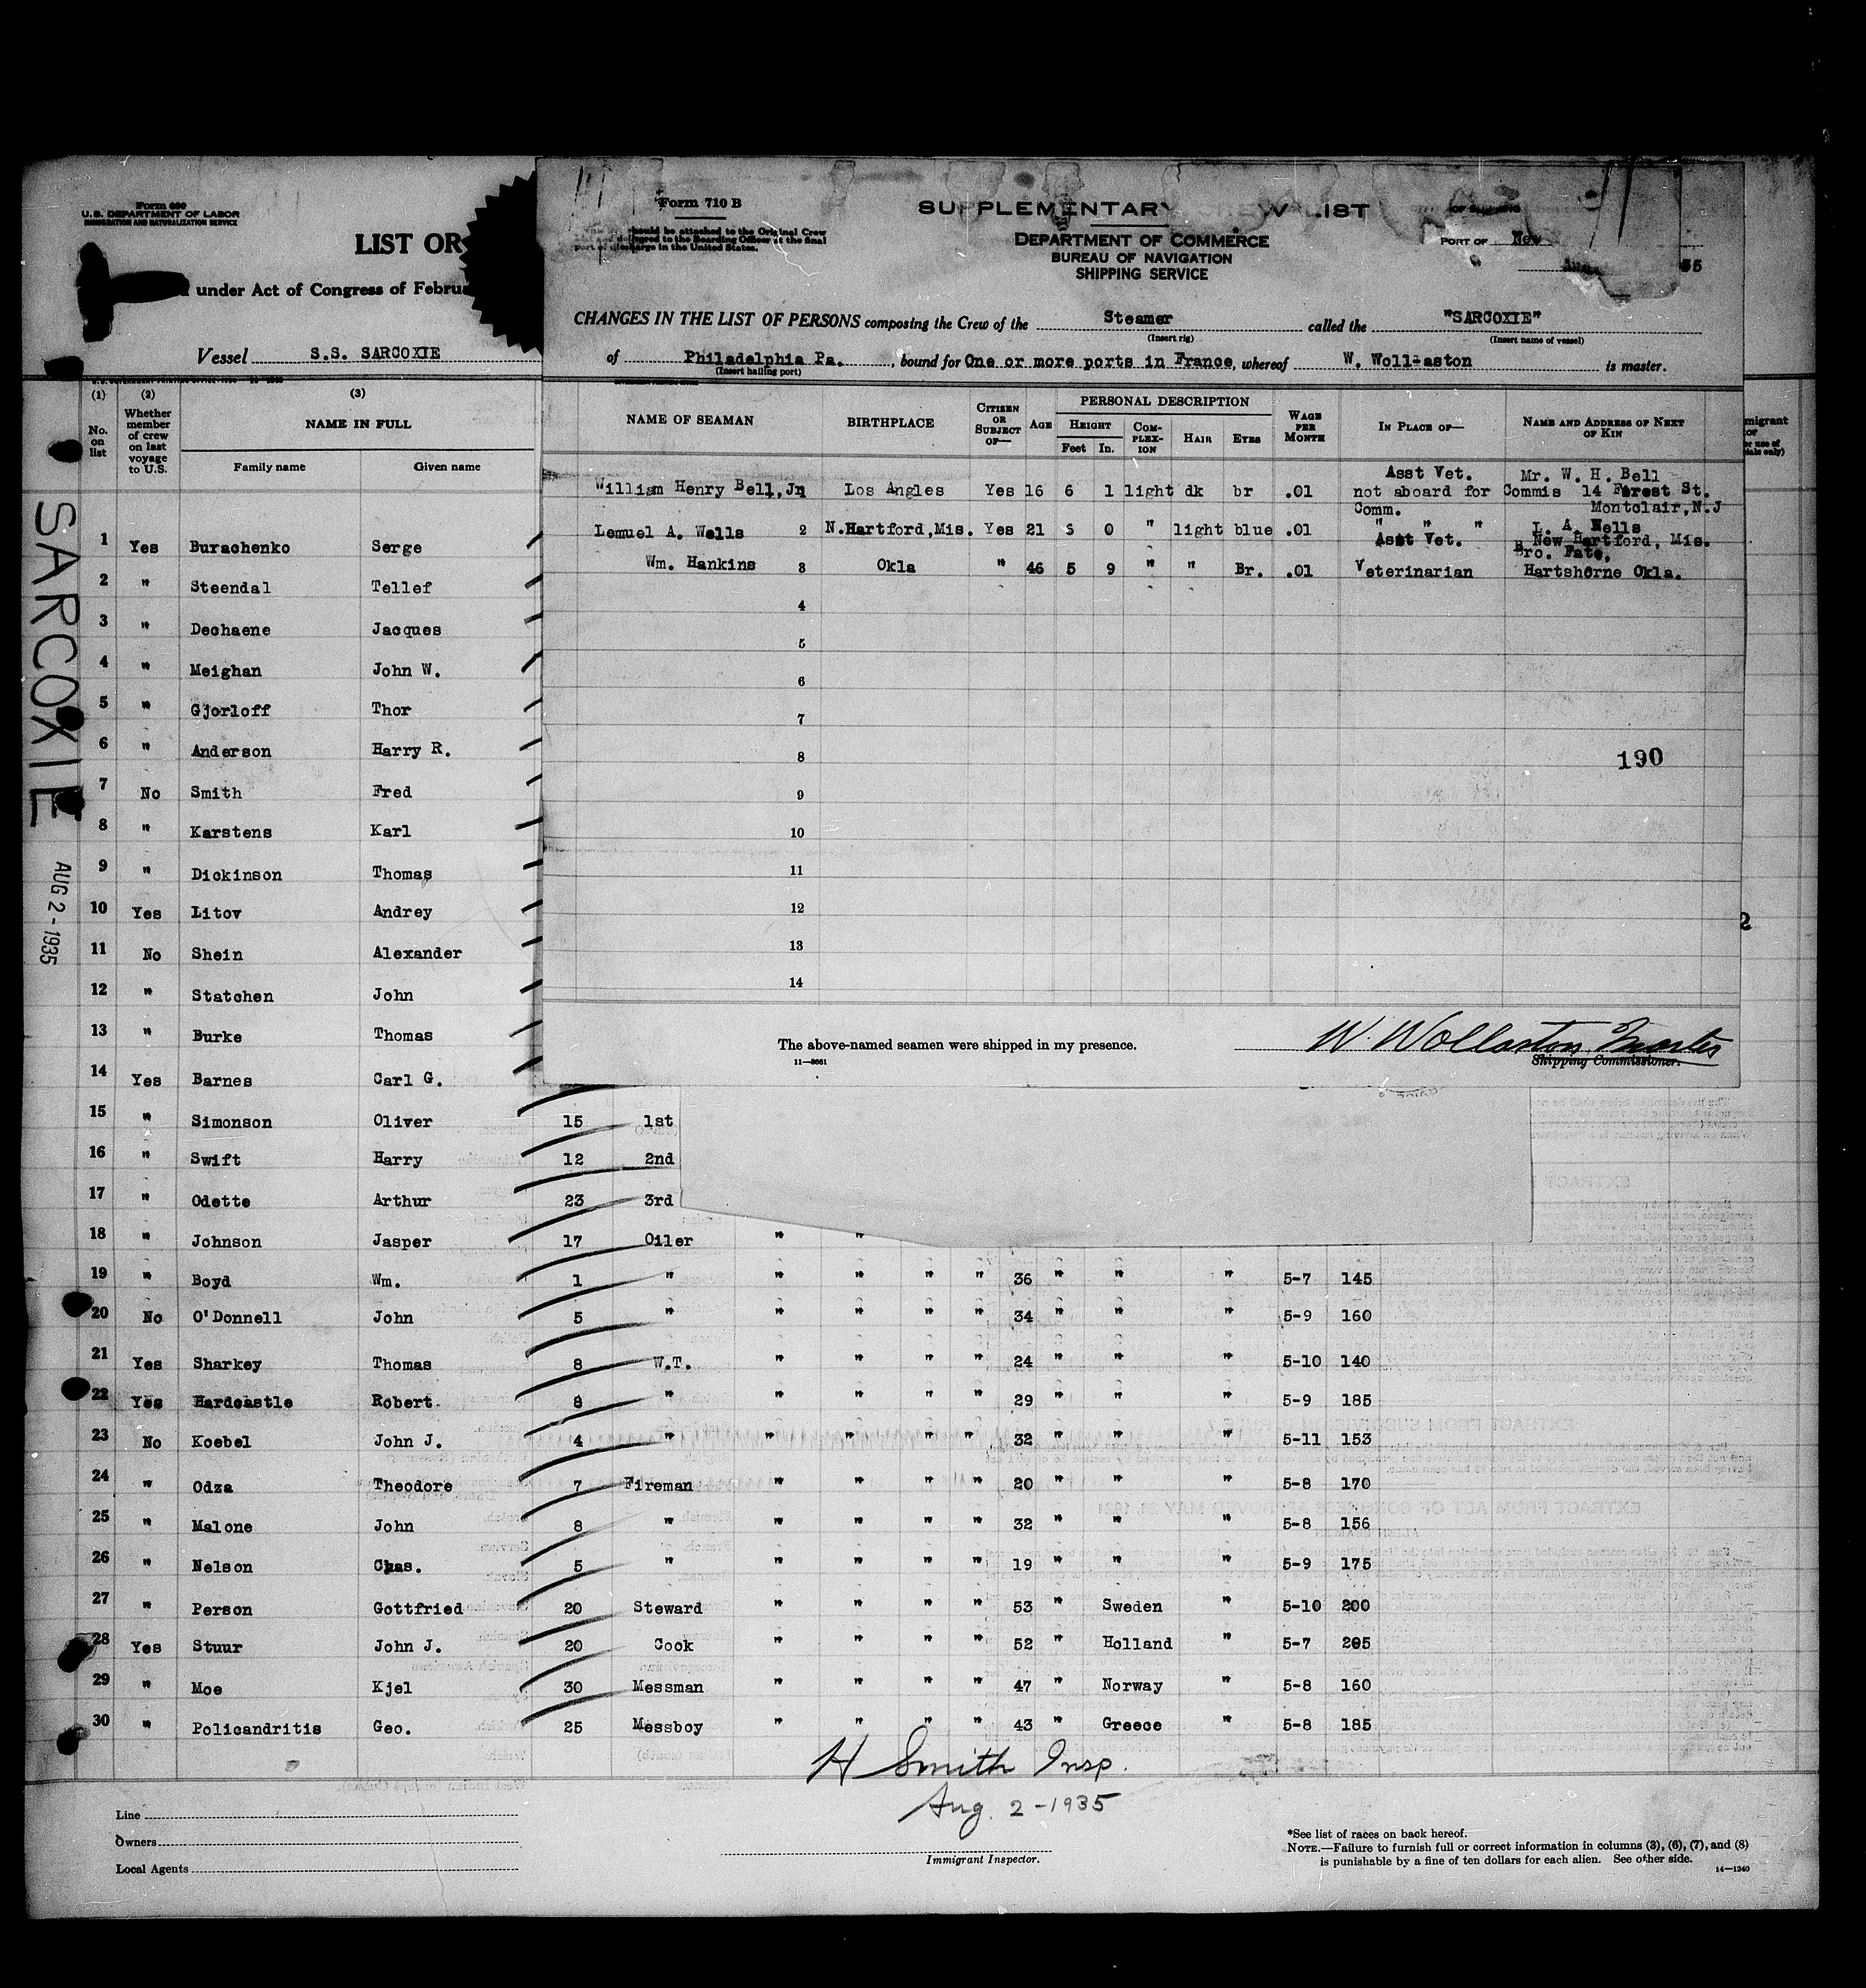 Form 680
U.S. DEPARTMENT OF LABOR
IMMIGRATION AND NATURALIZATION SERVICE
LIST OR
under Act of Congress of Februa
Vessel S.S. SARCOXIE
(1) (2) (3)
No. on list
Whether member of crew on last voyage to U.S.
NAME IN FULL
Family name Given name
SARCOXIE
AUG 2 - 1935
Form 710 B
should be attached to the Original Crew
delivered to the Boarding Officer at the final
port of discharge in the United States.
SUPPLEMENTARY CREW LIST
DEPARTMENT OF COMMERCE
BUREAU OF NAVIGATION
SHIPPING SERVICE
PORT OF New
Aug 35
CHANGES IN THE LIST OF PERSONS composing the Crew of the Steamer called the "SARCOXIE"
(Insert rig) (Insert name of vessel)
of Philadelphia Pa., bound for One or more ports in France, whereof W. Wollaston is master.
(Insert hailing port)
NAME OF SEAMAN BIRTHPLACE CITIZEN OR SUBJECT OF— AGE PERSONAL DESCRIPTION HEIGHT Feet In. COMPLEXION HAIR EYES WAGE PER MONTH IN PLACE OF— NAME AND ADDRESS OF NEXT OF KIN
Asst Vet. Mr. W. H. Bell
William Henry Bell,Jr 1 Los Angles Yes 16 6 1 light dk br .01 not aboard for Commis 14 Forest St.
Comm. Montclair,N.J
Lemuel A. Wells 2 N.Hartford,Mis. Yes 21 5 0 " light blue .01 " " " L. A. Wells
Asst Vet. New Hartford, Mis.
Bro. Fate,
Wm. Hankins 3 Okla " 46 5 9 " " Br. .01 Veterinarian Hartshorne Okla.
4
5
6
7
8
190
9
10
11
12
13
14
The above-named seamen were shipped in my presence.
11—8661
W. Wollaston Master
Shipping Commissioner.
migrant
or
2
1 Yes Burachenko Serge
2 " Steendal Tellef
3 " Dechaene Jacques
4 " Meighan John W.
5 " Gjorloff Thor
6 " Anderson Harry R.
7 No Smith Fred
8 " Karstens Karl
9 " Dickinson Thomas
10 Yes Litov Andrey
11 No Shein Alexander
12 " Statchen John
13 " Burke Thomas
14 Yes Barnes Carl G.
15 " Simonson Oliver 15 1st
16 " Swift Harry 12 2nd
17 " Odette Arthur 23 3rd
18 " Johnson Jasper 17 Oiler " "
19 " Boyd Wm. 1 " " " " " 36 " " " 5-7 145
20 No O'Donnell John 5 " " " " " 34 " " " 5-9 160
21 Yes Sharkey Thomas 8 W.T. " " " " 24 " " " 5-10 140
22 Yes Hardcastle Robert 8 " " " " " 29 " " " 5-9 185
23 No Koebel John J. 4 " " " " " 32 " " " 5-11 153
24 " Odza Theodore 7 Fireman " " " " 20 " " " 5-8 170
25 " Malone John 8 " " " " " 32 " " " 5-8 156
26 " Nelson Chas. 5 " " " " " 19 " " " 5-9 175
27 " Person Gottfried 20 Steward " " " " 53 " Sweden " 5-10 200
28 Yes Stuur John J. 20 Cook " " " " 52 " Holland " 5-7 205
29 " Moe Kjel 30 Messman " " " " 47 " Norway " 5-8 160
30 " Policandritis Geo. 25 Messboy " " " " 43 " Greece " 5-8 185
H Smith Insp.
Aug. 2-1935
Immigrant Inspector.
Line
Owners
Local Agents
*See list of races on back hereof.
NOTE.—Failure to furnish full or correct information in columns (3), (6), (7), and (8)
is punishable by a fine of ten dollars for each alien. See other side.
14—1240